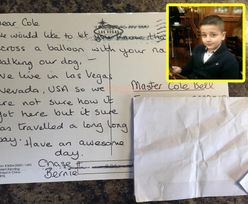 Dear Cole
We would like to let you know that
across a balloon with your na
walking our dog. -
We live in Las Vegas,
Nevada, USA so we
are not sure how it
got here but it sure
has travelled a long long
way. Have an awesome
day.
Chase &
Bernie
Master Cole Bell